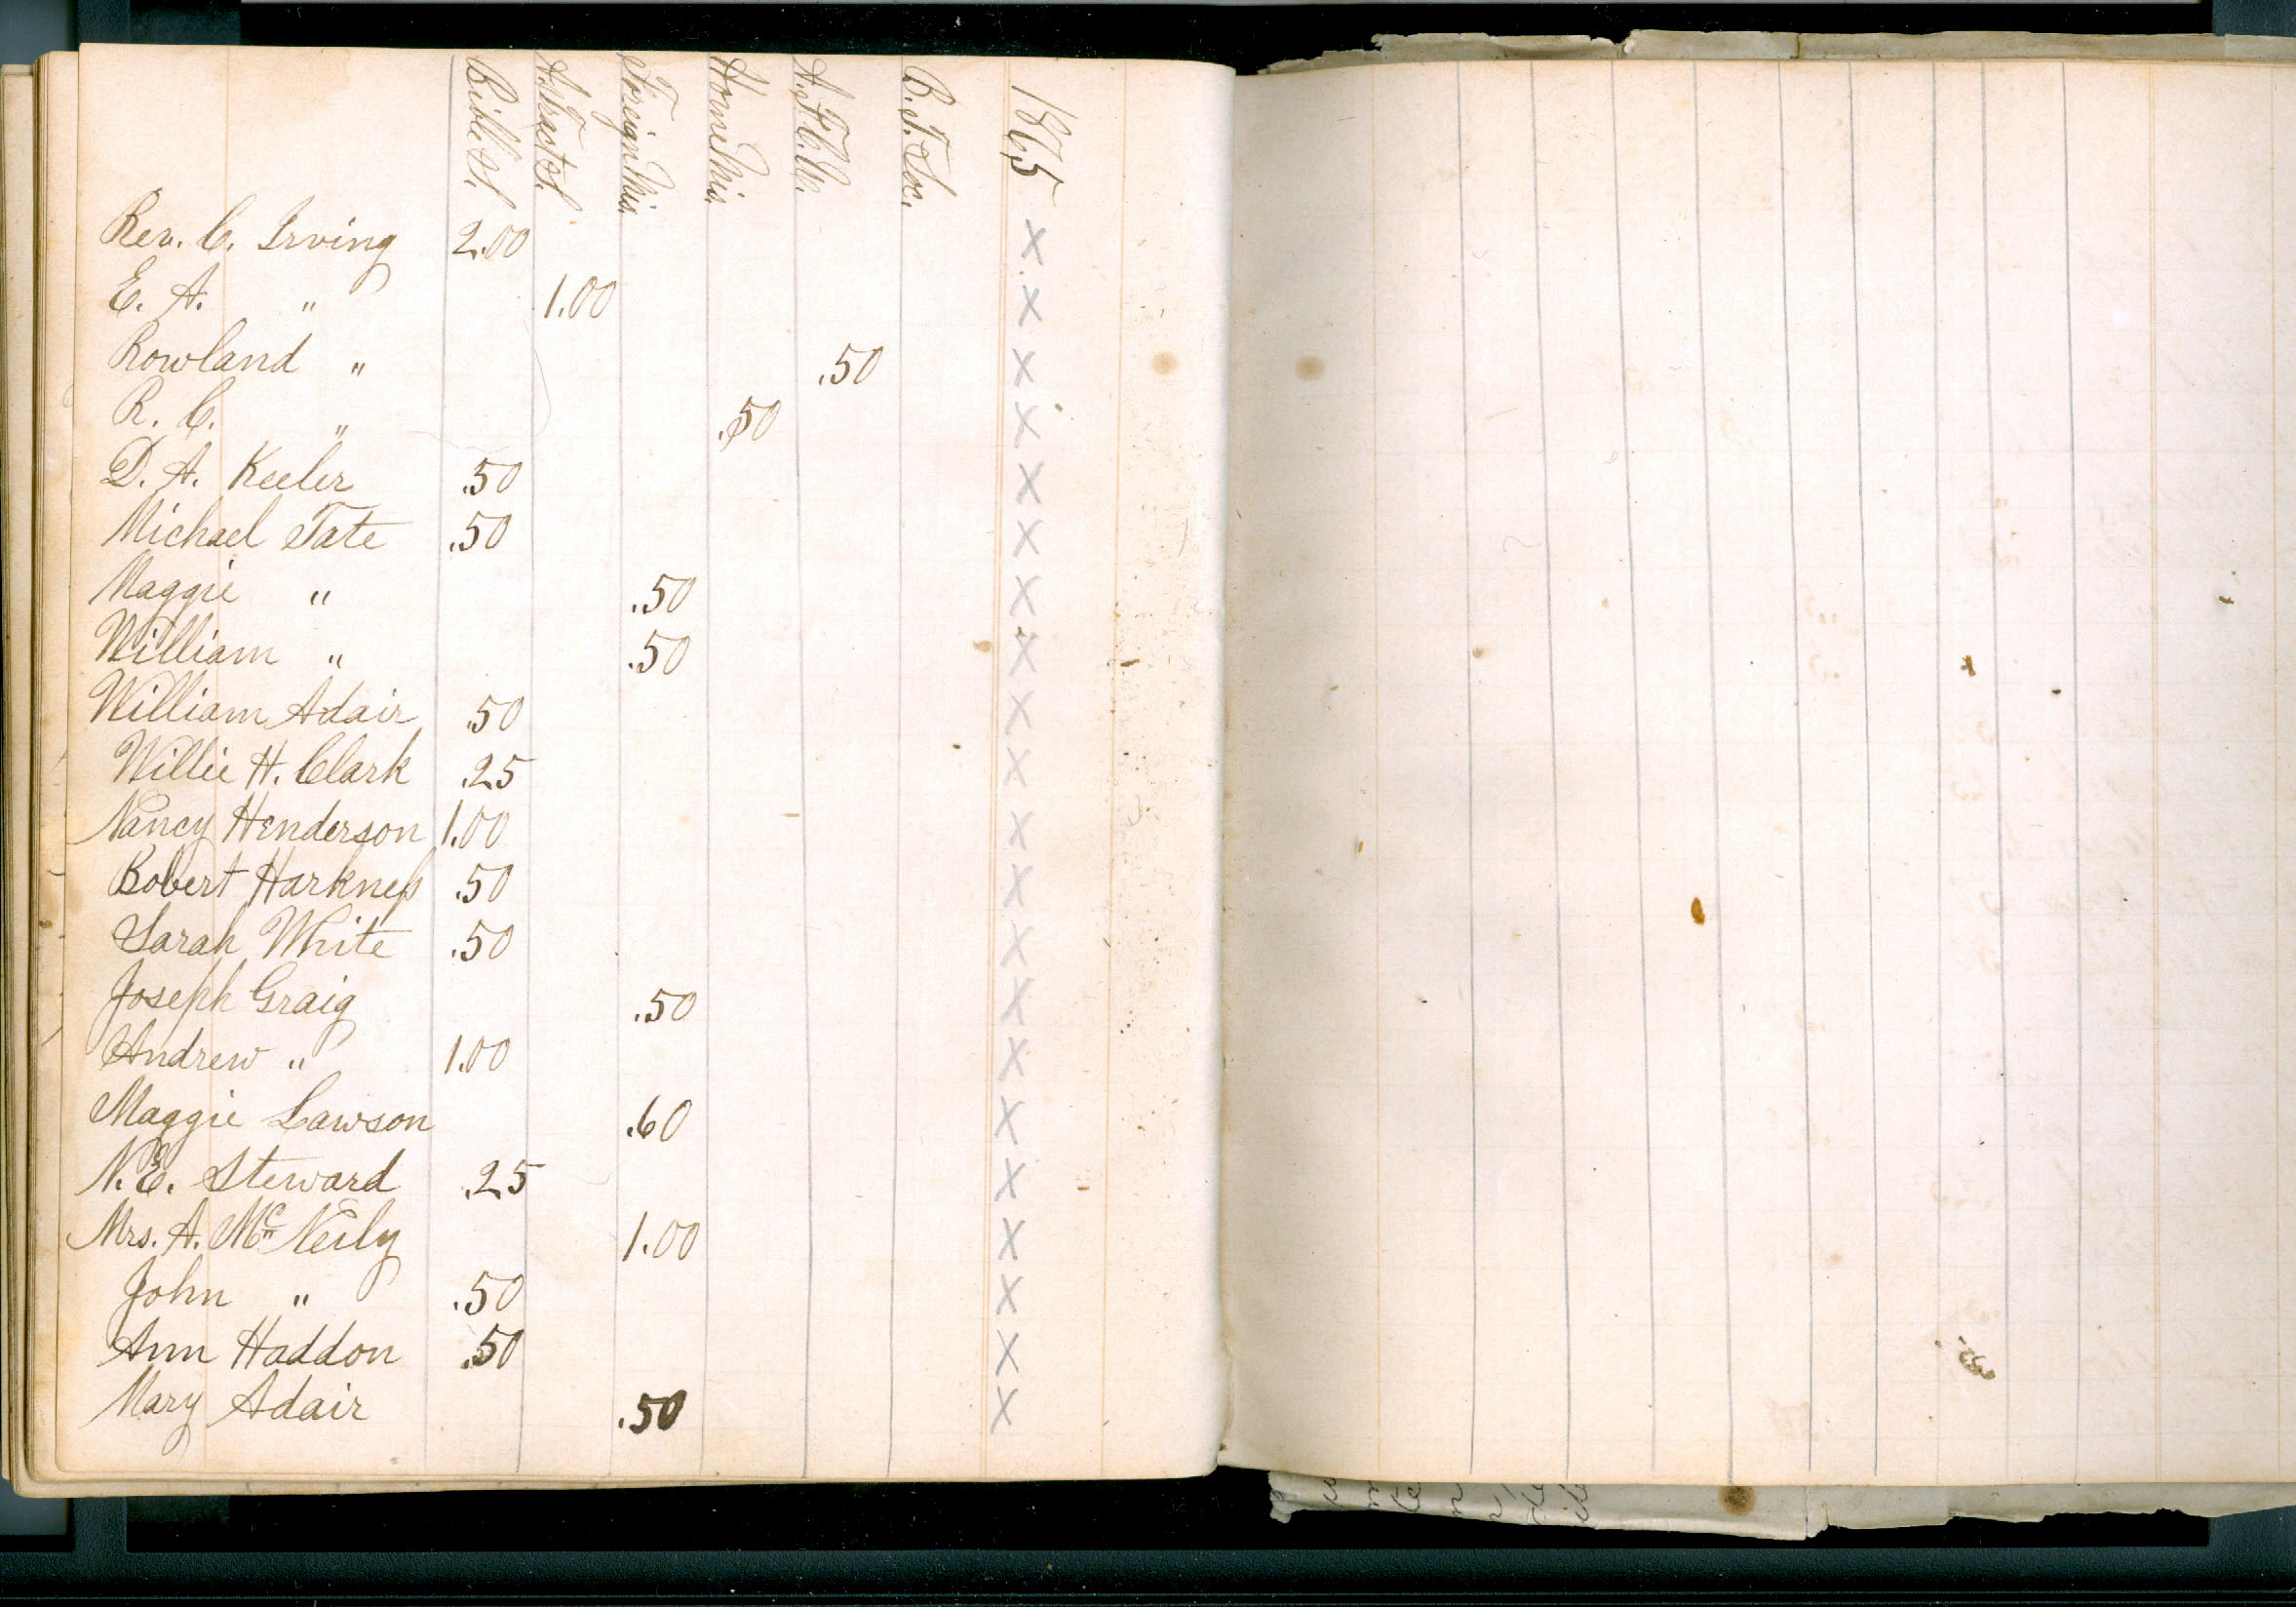 Bible S. A. Tract S. Foreign Mis. Home Mis. A. F. C. U. B. T. Soc. 1865
Rev. C. Irving 2.00 X
E. A. " 1.00 X
Rowland " .50 X
R. C. " .50 X
D. A. Keeler .50 X
Michael Tate .50 X
Maggie " .50 X
William " .50 X
William Adair .50 X
Willie H. Clark .25 X
Nancy Henderson 1.00 X
Robert Harkness .50 X
Sarah White .50 X
Joseph Graig .50 X
Andrew " 1.00 X
Maggie Lawson .60 X
N. E. Steward .25 X
Mrs. A. McNeily 1.00 X
John " .50 X
Ann Haddon .50 X
Mary Adair .50 X